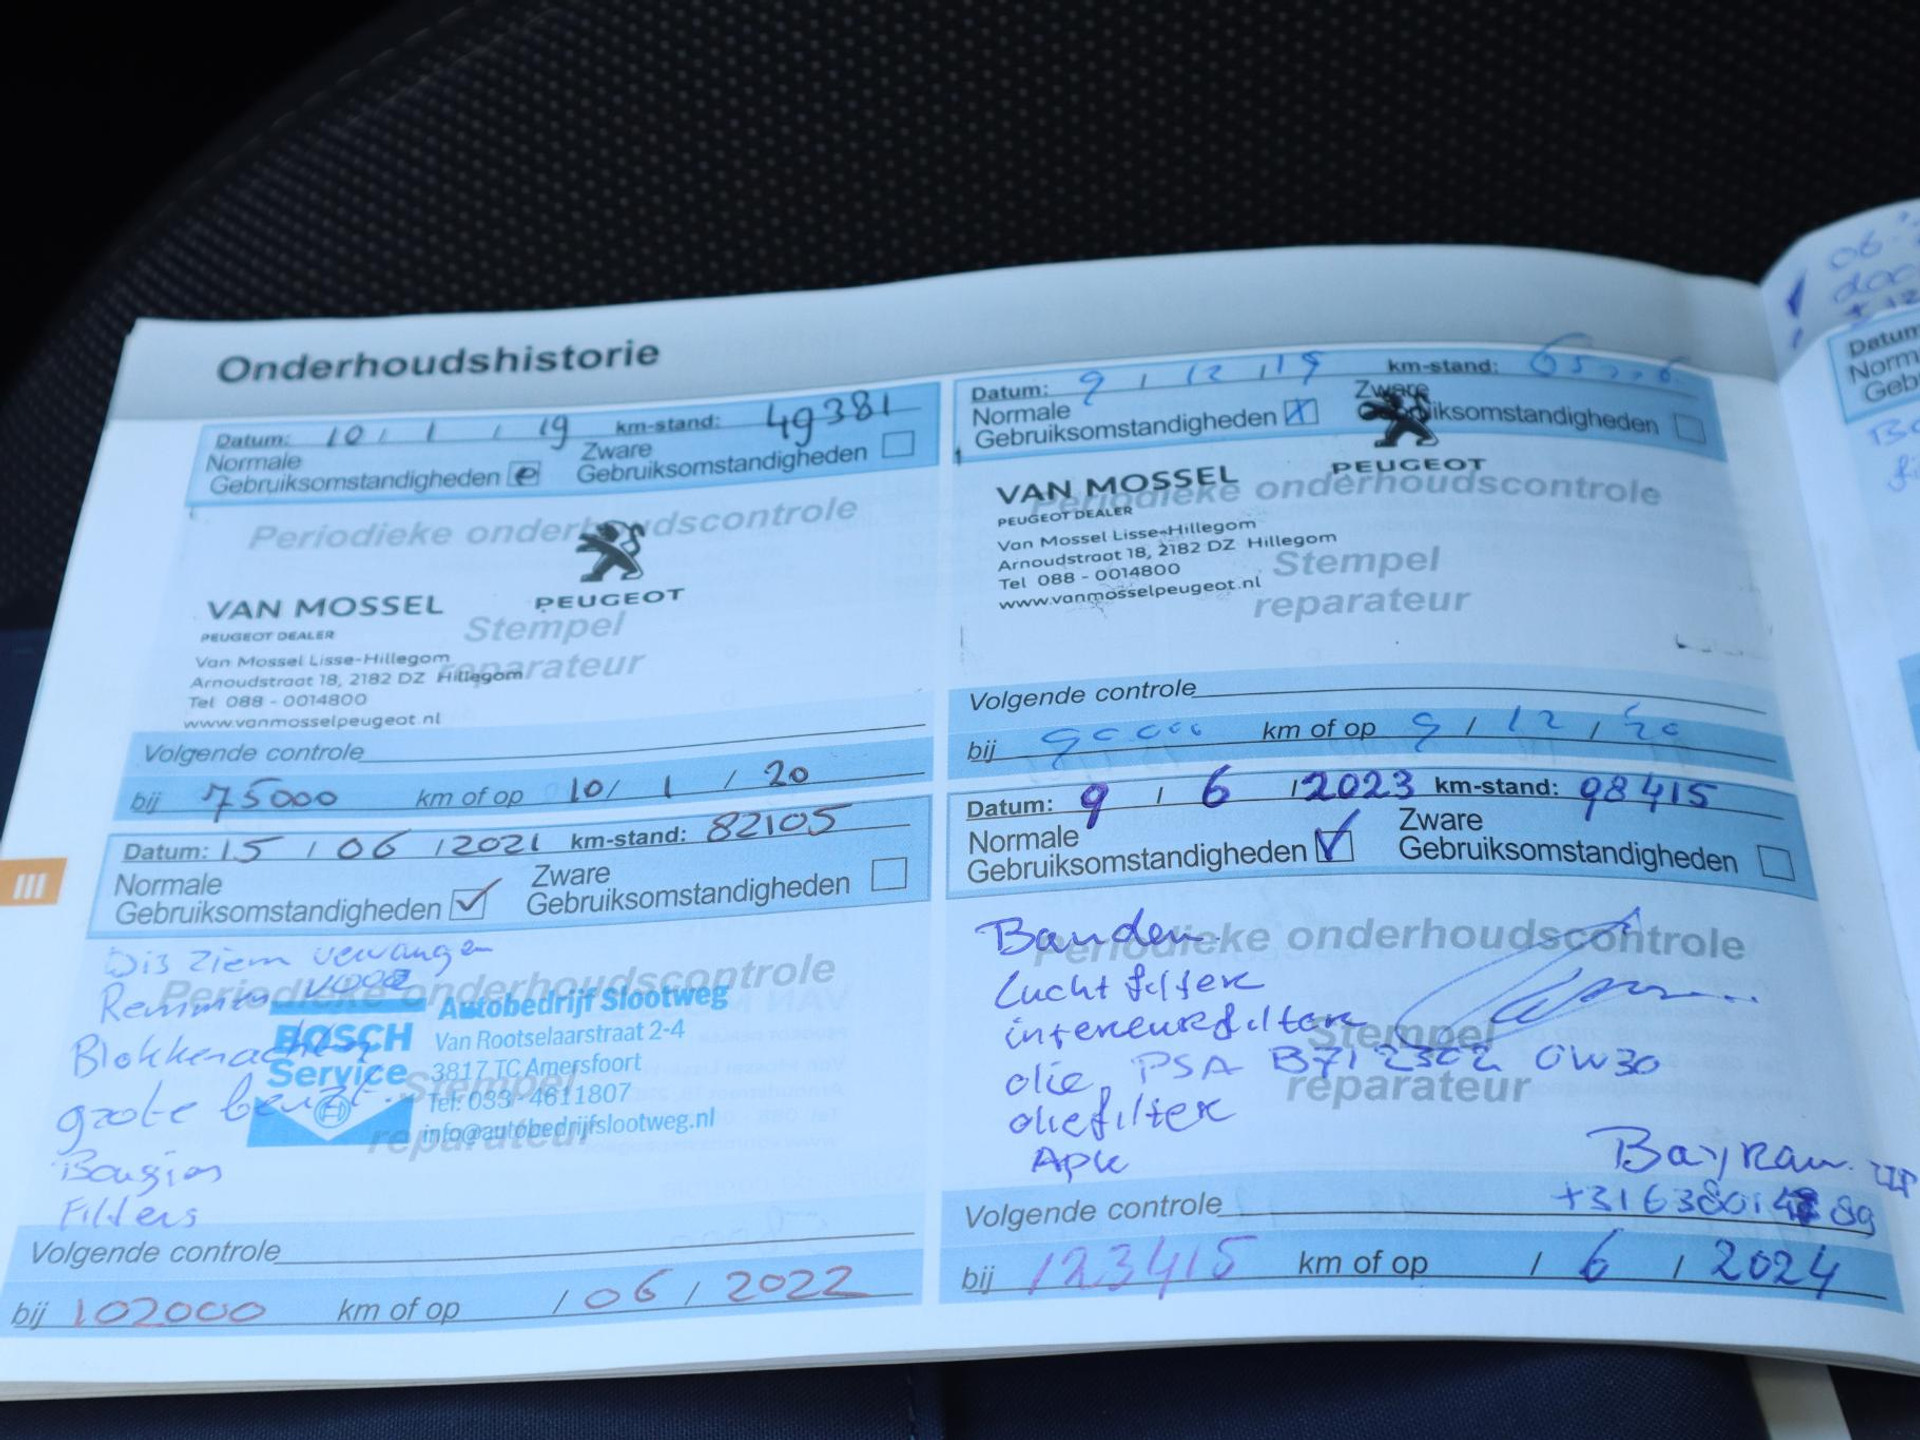 Onderhoudshistorie
Datum: 10 / 1 / 19 km-stand: 49381
Normale Gebruiksomstandigheden
Zware Gebruiksomstandigheden
Periodieke onderhoudscontrole
PEUGEOT
VAN MOSSEL
PEUGEOT DEALER
Stempel
reparateur
Van Mossel Lisse-Hillegom
Arnoudstraat 18, 2182 DZ Hillegom
Tel 088 - 0014800
www.vanmosselpeugeot.nl
Volgende controle
bij 75000 km of op 10 / 1 / 20
Datum: 9 / 12 / 19 km-stand:
Normale Gebruiksomstandigheden X
Zware Gebruiksomstandigheden
VAN MOSSEL PEUGEOT
PEUGEOT DEALER
Periodieke onderhoudscontrole
Van Mossel Lisse-Hillegom
Arnoudstraat 18, 2182 DZ Hillegom
Tel 088 - 0014800
www.vanmosselpeugeot.nl
Stempel
reparateur
Volgende controle
bij 90000 km of op 9 / 12 / 20
III
Datum: 15 / 06 / 2021 km-stand: 82105
Normale Gebruiksomstandigheden ✓
Zware Gebruiksomstandigheden
Periodieke onderhoudscontrole
vervangen
Remmen voor
Blokken achter
grote beurt.
Bougies
Filters
BOSCH
Service
Autobedrijf Slootweg
Van Rootselaarstraat 2-4
3817 TC Amersfoort
Tel: 033-4611807
info@autobedrijfslootweg.nl
Stempel
reparateur
Volgende controle
bij 102000 km of op / 06 / 2022
Datum: 9 / 6 / 2023 km-stand: 98415
Normale Gebruiksomstandigheden ✓
Zware Gebruiksomstandigheden
Periodieke onderhoudscontrole
Banden
Luchtfilter
interieurfilter
olie, PSA B71 2302 0W30
oliefilter
Apk
Stempel
reparateur
Bayram ZZP
Volgende controle
bij 123415 km of op / 6 / 2024
06
Datum
Norm
Geb